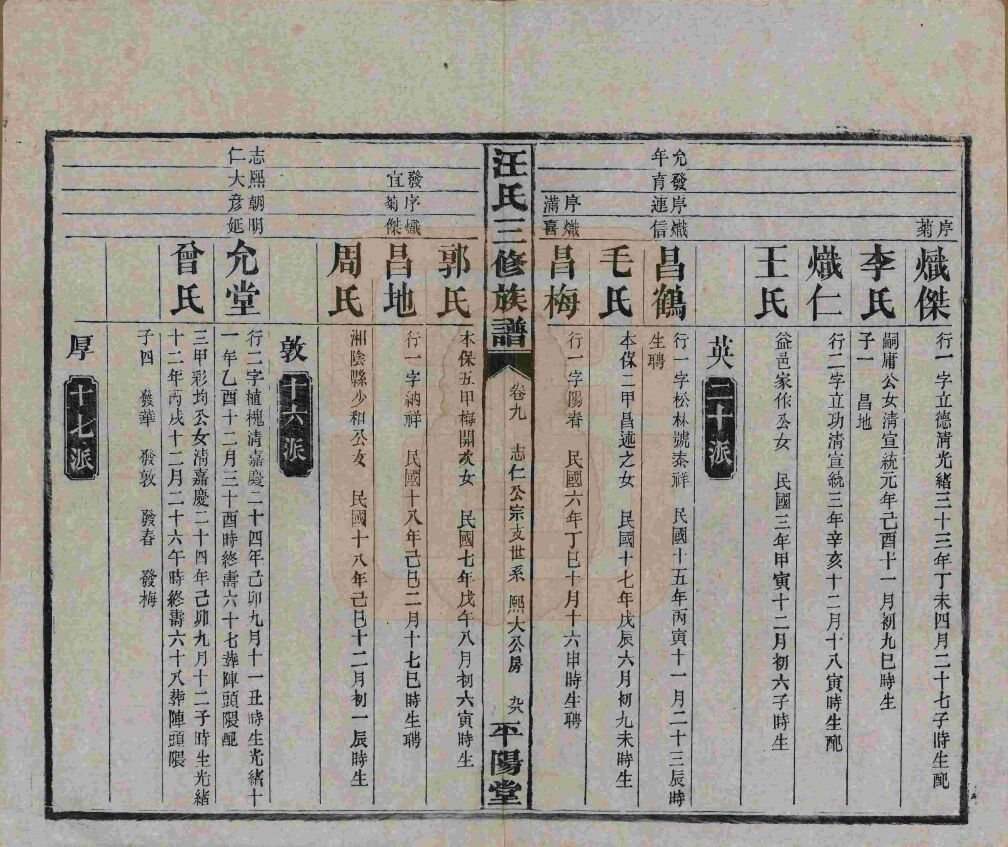 序
菊
熾傑
行一字立德清光緒三十三年丁未四月二十七子時生配
李氏
嗣庸公女清宣統元年己酉十一月初九巳時生
子一 昌地
熾仁
行二字立功清宣統三年辛亥十二月十八寅時生配
王氏
益邑家作公女 民國三年甲寅十二月初六子時生
英 二十派
允發序熾
年育連信
昌鶴
行一字松林號泰祥 民國十五年丙寅十一月二十三辰時
生聘
毛氏
本保二甲昌述之女 民國十七年戊辰六月初九未時生
序熾
滿喜
昌梅
行一字陽春 民國六年丁巳十月十六申時生聘
汪氏三修族譜 卷九 志仁公宗支世系 熙大公房 平陽堂
郭氏
本保五甲梅開次女 民國七年戊午八月初六寅時生
發序熾
宜菊傑
昌地
行一字納祥 民國十八年己巳二月十七巳時生聘
周氏
湘陰縣少和公女 民國十八年己巳十二月初一辰時生
敦 十六派
志熙朝明
仁大彥延
允堂
行二字植槐清嘉慶二十四年己卯九月十一丑時生光緒十
一年乙酉十二月三十酉時終壽六十七葬陣頭隈配
曾氏
三甲彩均公女清嘉慶二十四年己卯九月十二子時生光緒
十二年丙戌十二月二十六午時終壽六十八葬陣頭隈
子四 發華 發敦 發春 發梅
厚 十七派